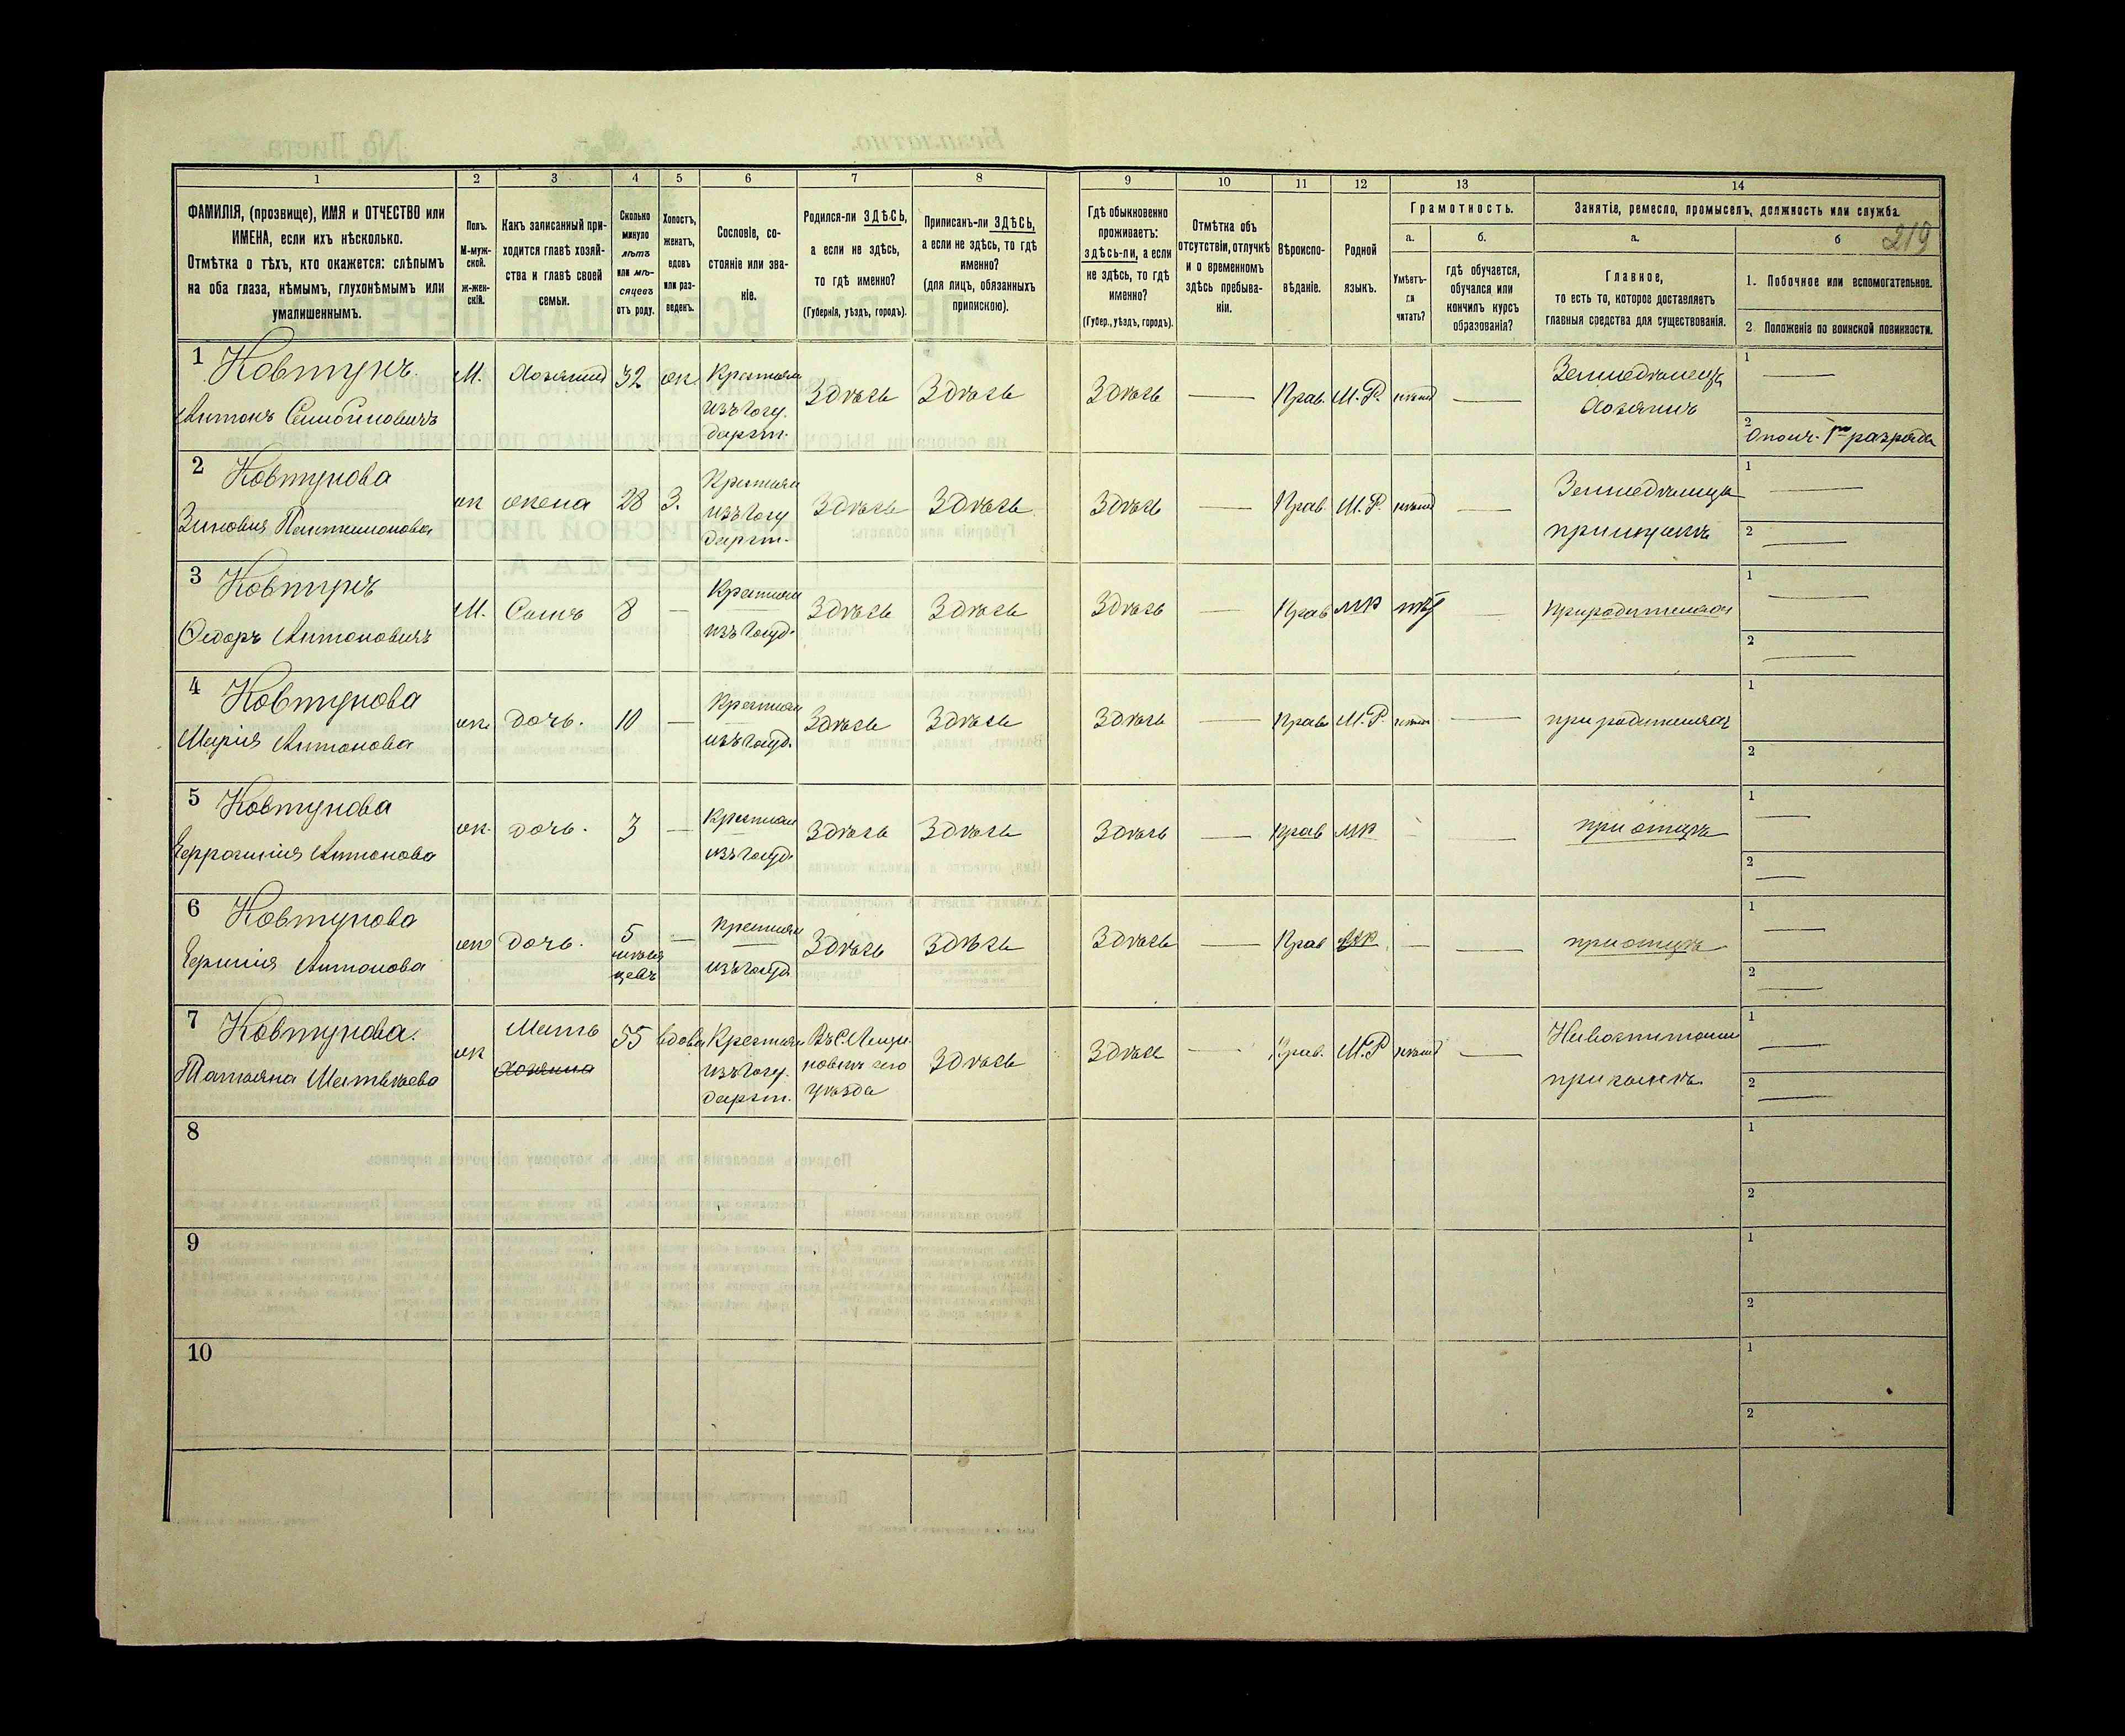 219
1 2 3 4 5 6 7 8 9 10 11 12 13 14
ФАМИЛІЯ, (прозвище), ИМЯ и ОТЧЕСТВО или
ИМЕНА, если ихъ нѣсколько.
Отмѣтка о тѣхъ, кто окажется: слѣпымъ
на оба глаза, нѣмымъ, глухонѣмымъ или
умалишеннымъ.
Полъ.
М-муж-
ской.
Ж-жен-
скій.
Какъ записанный при-
ходится главѣ хозяй-
ства и главѣ своей
семьи.
Сколько
минуло
лѣтъ
или мѣ-
сяцевъ
отъ роду.
Холостъ,
женатъ,
вдовъ
или раз-
веденъ.
Сословіе, со-
стояніе или зва-
ніе.
Родился-ли ЗДѢСЬ,
а если не здѣсь,
то гдѣ именно?
(Губернія, уѣздъ, городъ).
Приписанъ-ли ЗДѢСЬ,
а если не здѣсь, то гдѣ
именно?
(для лицъ, обязанныхъ
припискою).
Гдѣ обыкновенно
проживаетъ:
здѣсь-ли, а если
не здѣсь, то гдѣ
именно?
(Губер., уѣздъ, городъ).
Отмѣтка объ
отсутствіи, отлучкѣ
и о временномъ
здѣсь пребыва-
ніи.
Вѣроиспо-
вѣданіе.
Родной
языкъ.
Грамотность.
а.
Умѣетъ-
ли
читать?
б.
гдѣ обучается,
обучался или
кончилъ курсъ
образованія?
Занятіе, ремесло, промыселъ, должность или служба.
а.
Главное,
то есть то, которое доставляетъ
главныя средства для существованія.
б
1. Побочное или вспомогательное.
2. Положеніе по воинской повинности.
1 Ковтунъ
Антонъ
М. Хозяинъ 32 ж. Крестьян
изъ госу.
дарст.
Здѣсь Здѣсь Здѣсь — Прав. М.Р. —
Земледѣлецъ
Хозяинъ
1 —
2 Ополч. 1го разряда
2 Ковтунова
Зиновия Пантелимонова
ж жена 28 З. Крестьян
изъ госу
дарст.
Здѣсь Здѣсь Здѣсь — Прав. М.Р. —
при мужѣ
1 —
2 —
3 Ковтунъ
Ѳедоръ Антоновичъ
М. Сынъ 8 — Крестьян
изъ госуд.
Здѣсь Здѣсь Здѣсь — Прав МР —
при родителяхъ
1 —
2 —
4 Ковтунова
Марія Антонова
ж. дочь. 10 — Крестьян
изъ госуд.
Здѣсь Здѣсь Здѣсь — Прав М.Р. —
при родителяхъ
1
2
5 Ковтунова
Антонова
ж. дочь. 3 — Крестьян
изъ госуд.
Здѣсь Здѣсь Здѣсь — Прав МР - —
при отцѣ
1 —
2 —
6 Ковтунова
Антонова
ж дочь. 5
мѣся
цевъ
— Крестьян
изъ госуд.
Здѣсь Здѣсь Здѣсь — Прав МР — —
при отцѣ
1 —
2 —
7 Ковтунова.
Татьяна Матвѣева
ж Мать
хозяина
55 вдова Крестьян
изъ госу.
дарст.
сего
уѣзда
Здѣсь Здѣсь — Прав. М.Р —
при сынѣ
1 —
2 —
8
1
2
9
1
2
10
1
2